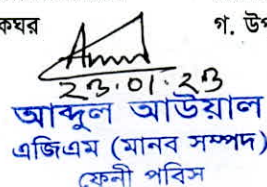 কঘর গ. উপ
23.01.23
আব্দুল আউয়াল
এজিএম (মানব সম্পদ)
ফেনী পবিস